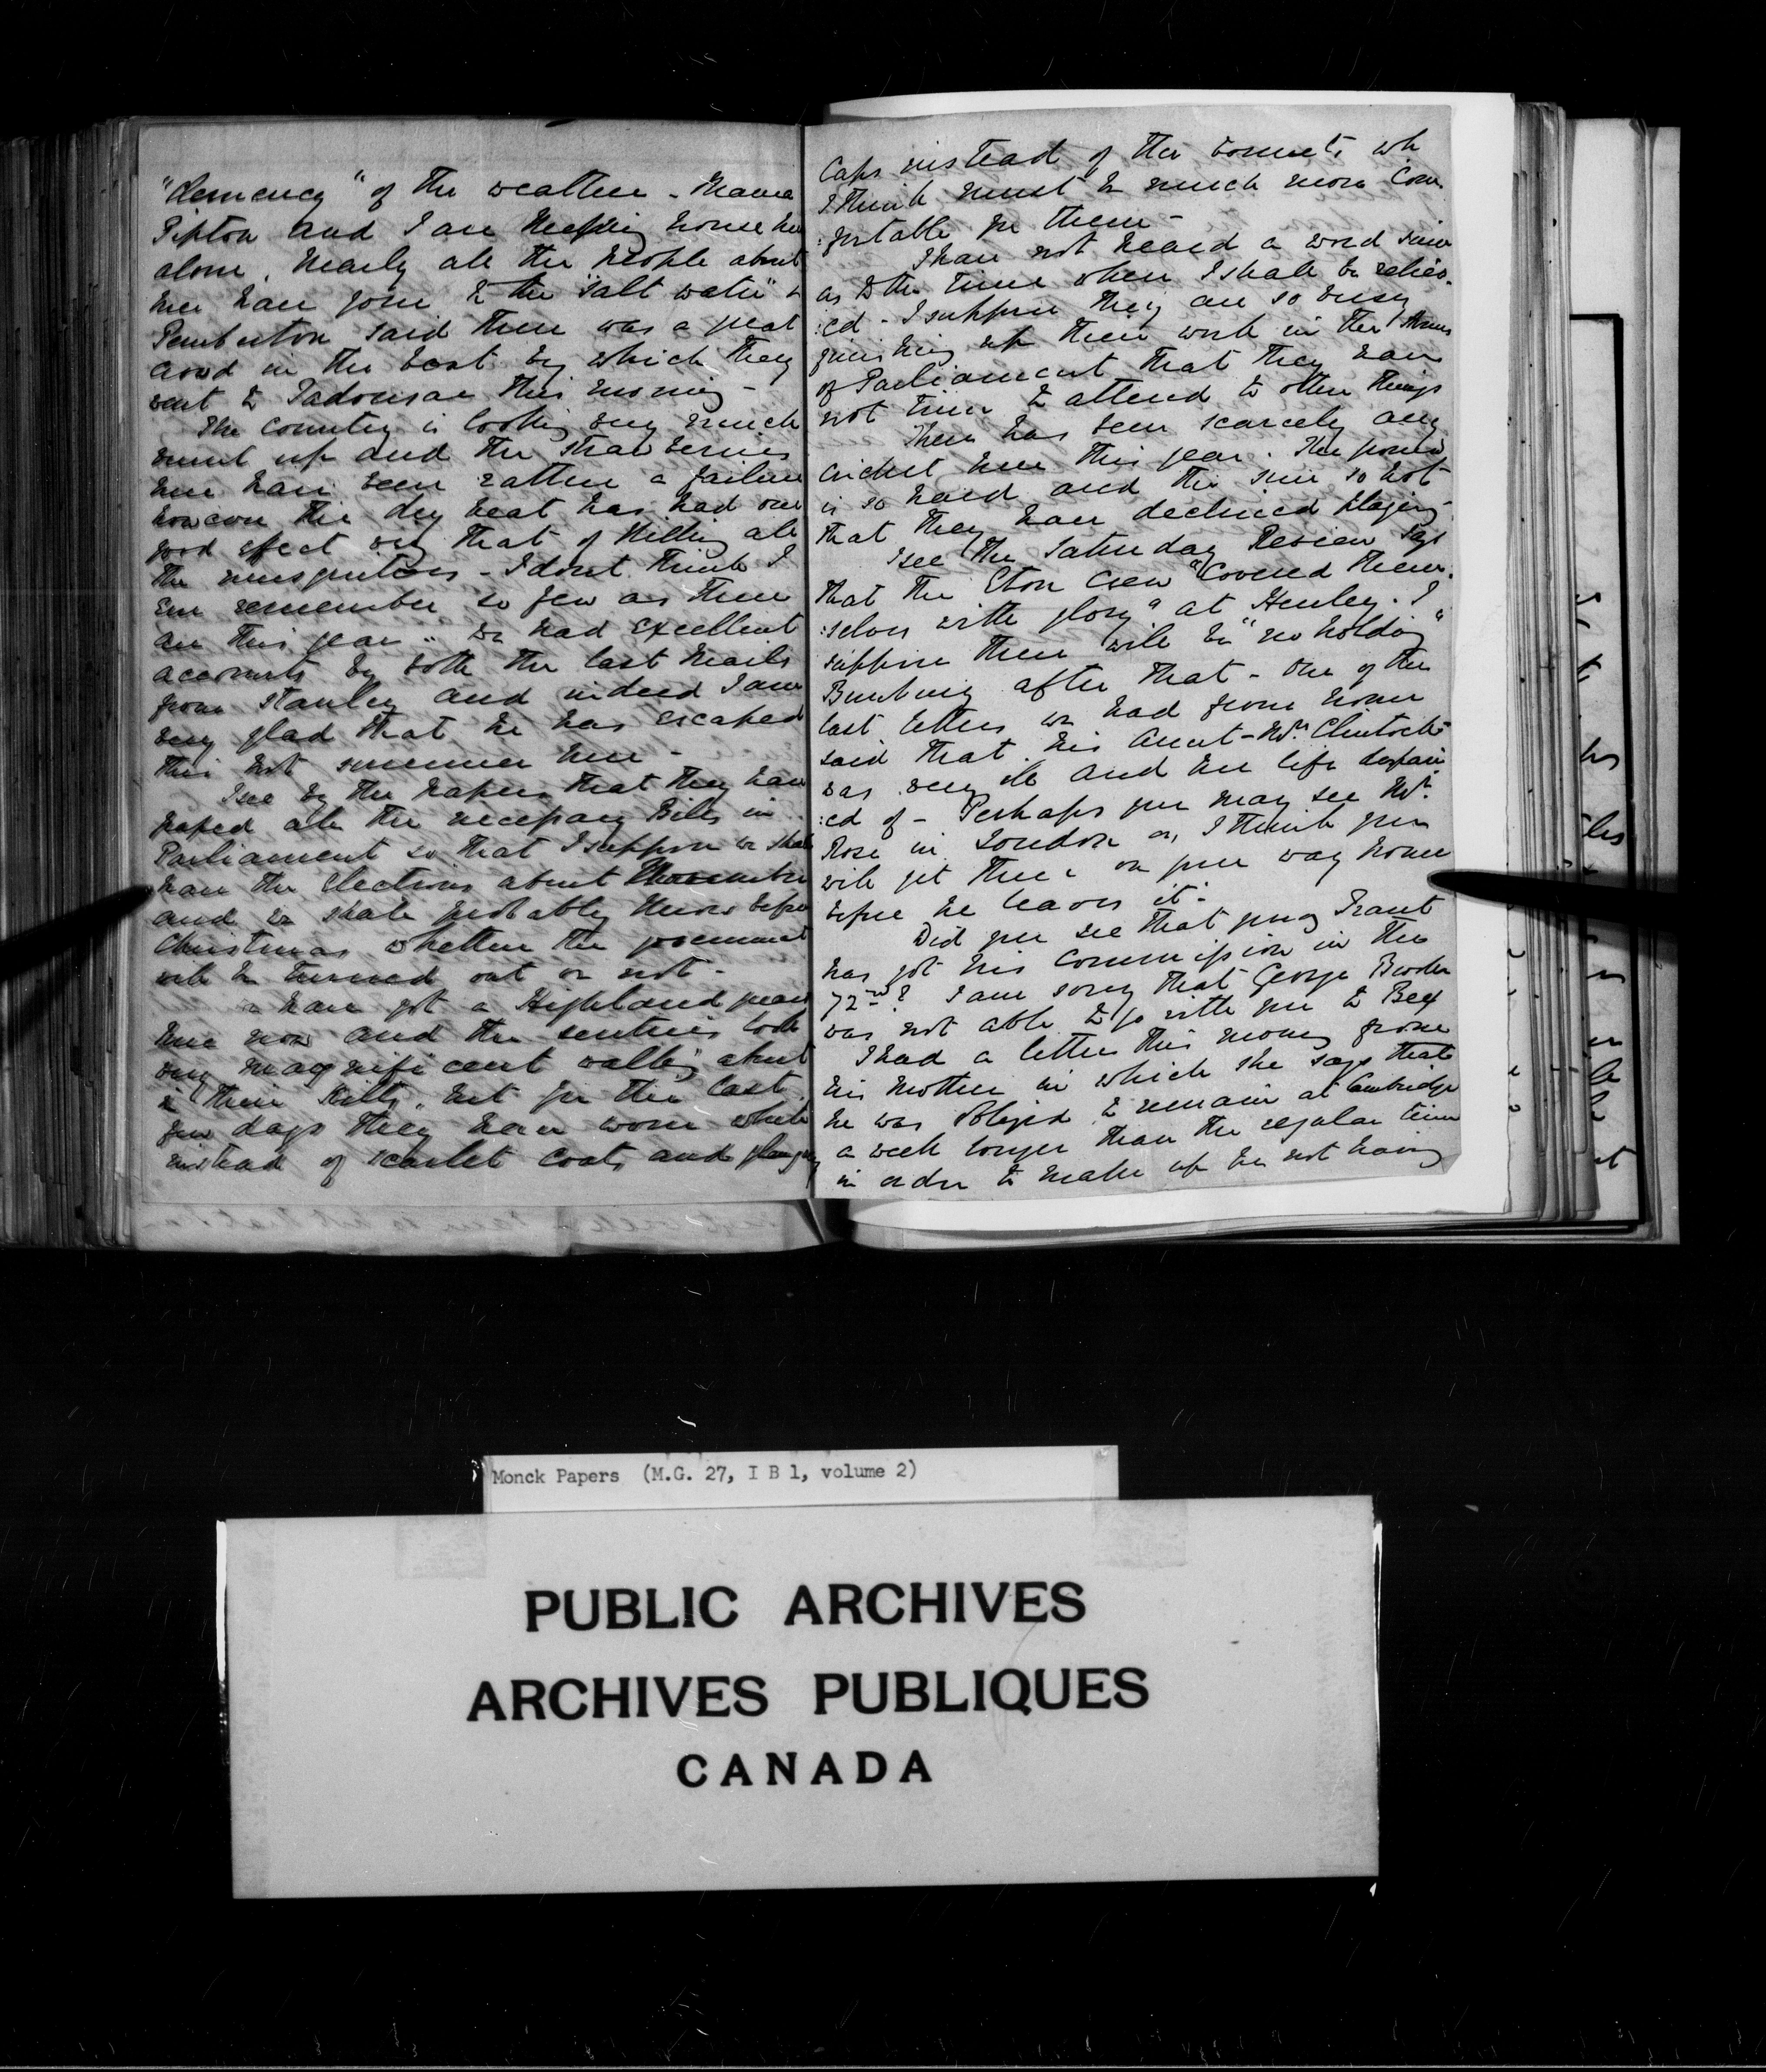 "clemency" of the weather - Mama
Pipton and I are keeping house here
alone, nearly all the people about
here have gone to the "salt water" &
Pemberton said there was a great
crowd in the boat by which they
went to Tadousac this morning -
The country is looking very much
burnt up and the strawberries
here have been rather a failure
however the dry heat has had one
good effect viz that of killing all
the musquitoes - I dont think I
ever remember so few as there
are this year. We had excellent
accounts by both the last mails
from Stanley and indeed I am
very glad that he has escaped
this hot summer here -
I see by the papers that they have
passed all the necessary Bills in
Parliament so that I suppose we shall
have the elections about November
and we shall probably know before
Christmas whether the government
will be turned out or not -
We have got a Highland guard
here now and the sentries look
very magnificent walking about
in their kilts, but for the last
few days they have worn white
instead of scarlet coats and glengarry
Caps instead of the bonnets wh
I think must be much more com-
:fortable for them -
I have not heard a word since
as to the time when I shall be reliev-
:ed - I suppose they are so busy
finishing up their work in the Houses
of Parliament that they have
not time to attend to other things
There has been scarcely any
cricket here this year. The ground
is so hard and the sun so hot
that they have declined playing -
I see the Saturday Review says
that the Eton crew "Covered them-
:selves with glory" at Henley. I
suppose there will be "no holding"
Bunbury after that - One of the
last letters we had from home
said that his Aunt - Mrs. Clintock -
was very ill and her life despair
:ed of - Perhaps you may see Mr.
Rose in London as, I think you
will get there on your way home
before he leaves it -
Did you see that young Grant
has got his commission in the
72nd? I am sorry that George Brooke
was not able to go with you to Bex
I had a letter this morng from
his mother in which she says that
he was obliged to remain at Cambridge
a week longer than the regular time
in order to make up for not having
Monck Papers (M.G. 27, I B 1, volume 2)
PUBLIC ARCHIVES
ARCHIVES PUBLIQUES
CANADA